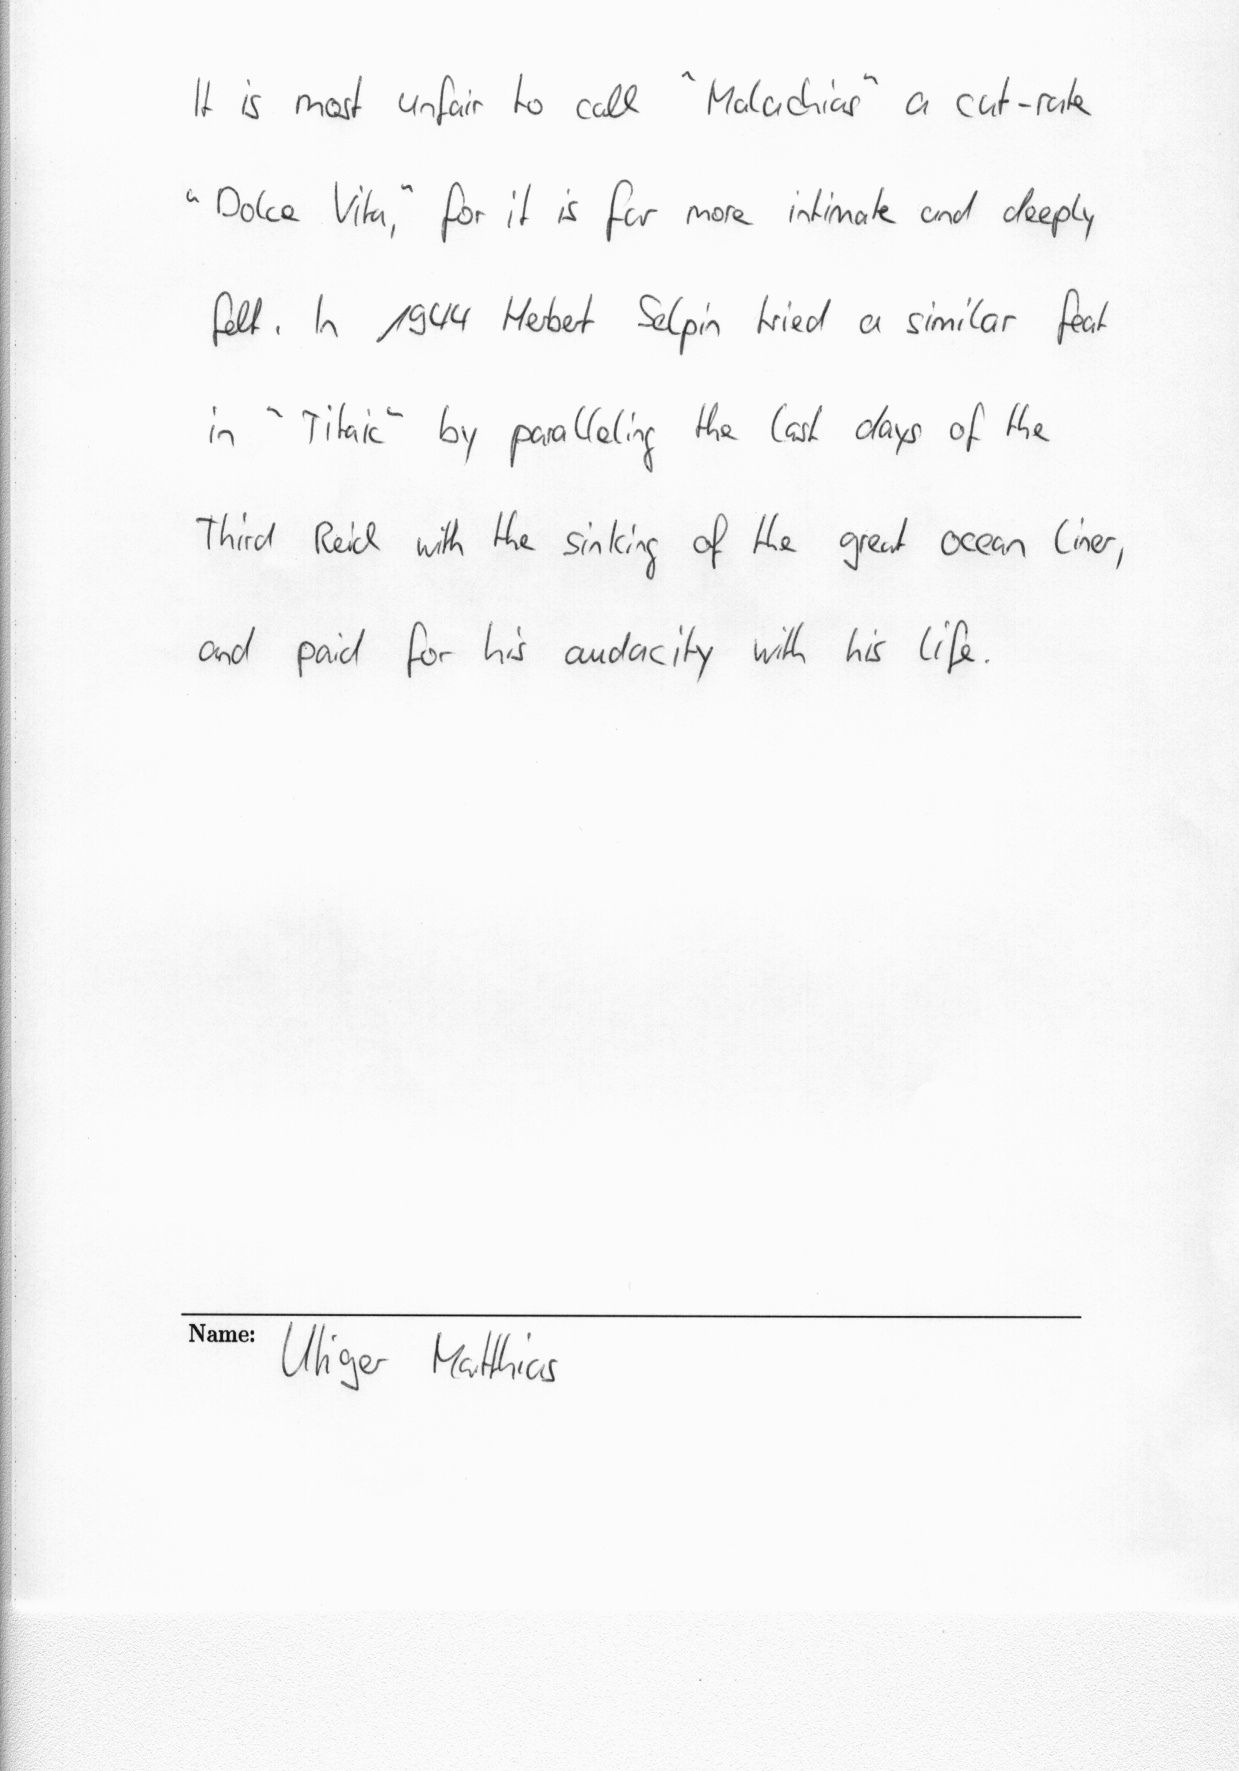 It is most unfair to call "Malachias" a cut-rate
"Dolce Vita," for it is far more intimate and deeply
felt. In 1944 Herbert Selpin tried a similar feat
in "Titaic" by paralleling the last days of the
Third Reich with the sinking of the great ocean liner,
and paid for his audacity with his life.
Name: Utiger Matthias